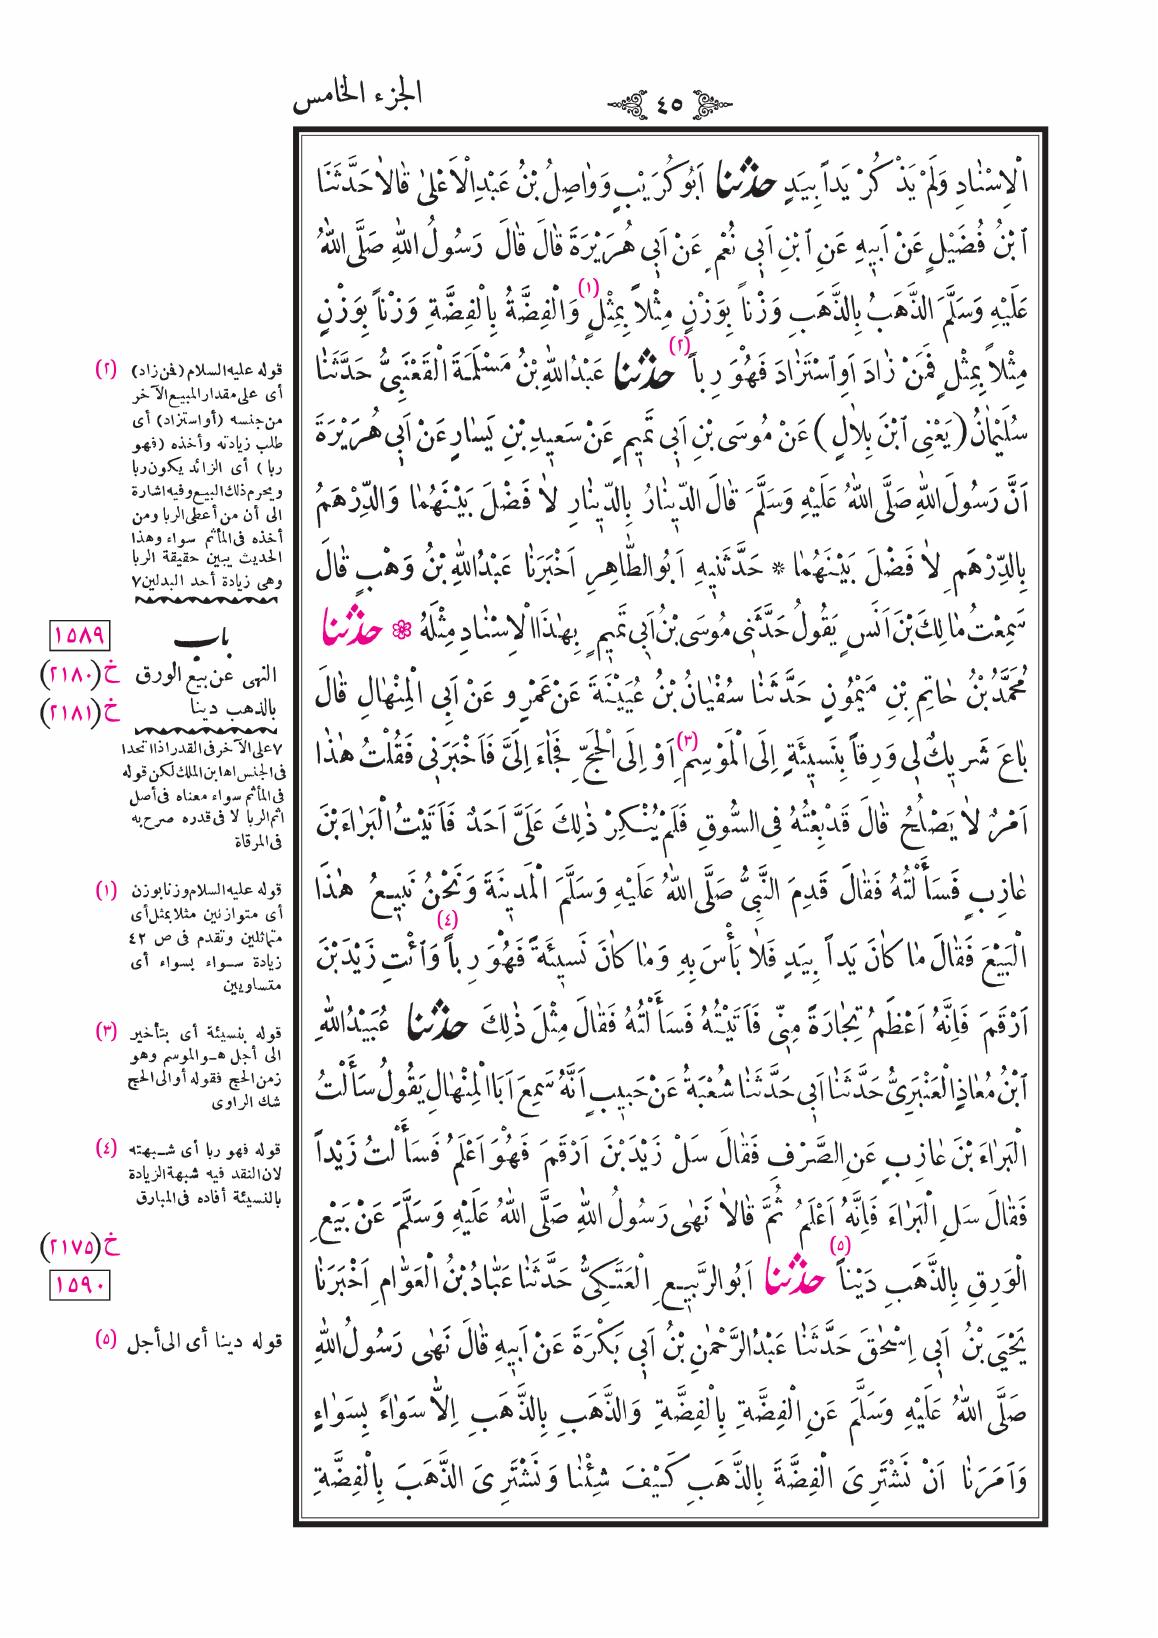 ٤٥
الجزء الخامس
الْاِسْنَادِ وَلَمْ يَذْكُرْ يَداً بِيَدٍ حدثنا اَبُو كُرَيْبٍ وَوَاصِلُ بْنُ عَبْدِ الْاَعْلىٰ قَالاَ حَدَّثَنَا
ٱبْنُ فُضَيْلٍ عَنْ اَبِيهِ عَنِ ٱبْنِ اَبِي نُعْمٍ عَنْ اَبِي هُرَيْرَةَ قَالَ قَالَ رَسُولُ اللّٰهِ صَلَّى اللّٰهُ
عَلَيْهِ وَسَلَّمَ الذَّهَبُ بِالذَّهَبِ وَزْناً بِوَزْنٍ مِثْلاً بِمِثْلٍ (١) وَالْفِضَّةُ بِالْفِضَّةِ وَزْناً بِوَزْنٍ
مِثْلاً بِمِثْلٍ فَمَنْ زَادَ اَوِ ٱسْتَزَادَ فَهُوَ رِباً (٢) حدثنا عَبْدُ اللّٰهِ بْنُ مَسْلَمَةَ الْقَعْنَبِىُّ حَدَّثَنَا
سُلَيْمَانُ (يَعْنِى ٱبْنَ بِلاَلٍ) عَنْ مُوسَى بْنِ اَبِى تَمِيمٍ عَنْ سَعِيدِ بْنِ يَسَارٍ عَنْ اَبِي هُرَيْرَةَ
اَنَّ رَسُولَ اللّٰهِ صَلَّى اللّٰهُ عَلَيْهِ وَسَلَّمَ قَالَ الدِّينَارُ بِالدِّينَارِ لاَ فَضْلَ بَيْنَهُمَا وَالدِّرْهَمُ
بِالدِّرْهَمِ لاَ فَضْلَ بَيْنَهُمَا * حَدَّثَنِيهِ اَبُو الطَّاهِرِ اَخْبَرَنَا عَبْدُ اللّٰهِ بْنُ وَهْبٍ قَالَ
سَمِعْتُ مَالِكَ بْنَ اَنَسٍ يَقُولُ حَدَّثَنِى مُوسَى بْنُ اَبِي تَمِيمٍ بِهٰذَا الْاِسْنَادِ مِثْلَهُ ❁ حدثنا
مُحَمَّدُ بْنُ حَاتِمِ بْنِ مَيْمُونٍ حَدَّثَنَا سُفْيَانُ بْنُ عُيَيْنَةَ عَنْ عَمْرٍو عَنْ اَبِي الْمِنْهَالِ قَالَ
بَاعَ شَرِيكٌ لِي وَرِقاً بِنَسِيئَةٍ اِلَى الْمَوْسِمِ (٣) اَوْ اِلَى الْحَجِّ فَجَاءَ اِلَىَّ فَاَخْبَرَنِى فَقُلْتُ هٰذَا
اَمْرٌ لاَ يَصْلُحُ قَالَ قَدْ بِعْتُهُ فِى السُّوقِ فَلَمْ يُنْكِرْ ذٰلِكَ عَلَىَّ اَحَدٌ فَاَتَيْتُ الْبَرَاءَ بْنَ
عَازِبٍ فَسَأَلْتُهُ فَقَالَ قَدِمَ النَّبِىُّ صَلَّى اللّٰهُ عَلَيْهِ وَسَلَّمَ الْمَدِينَةَ وَنَحْنُ نَبِيعُ هٰذَا
الْبَيْعَ فَقَالَ مَا كَانَ يَداً بِيَدٍ فَلاَ بَأْسَ بِهِ وَمَا كَانَ نَسِيئَةً فَهُوَ رِباً (٤) وَٱئْتِ زَيْدَ بْنَ
اَرْقَمَ فَاِنَّهُ اَعْظَمُ تِجَارَةً مِنِّى فَاَتَيْتُهُ فَسَأَلْتُهُ فَقَالَ مِثْلَ ذٰلِكَ حدثنا عُبَيْدُ اللّٰهِ
ٱبْنُ مُعَاذٍ الْعَنْبَرِىُّ حَدَّثَنَا اَبِي حَدَّثَنَا شُعْبَةُ عَنْ حَبِيبٍ اَنَّهُ سَمِعَ اَبَا الْمِنْهَالِ يَقُولُ سَأَلْتُ
الْبَرَاءَ بْنَ عَازِبٍ عَنِ الصَّرْفِ فَقَالَ سَلْ زَيْدَ بْنَ اَرْقَمَ فَهُوَ اَعْلَمُ فَسَأَلْتُ زَيْداً
فَقَالَ سَلِ الْبَرَاءَ فَاِنَّهُ اَعْلَمُ ثُمَّ قَالاَ نَهٰى رَسُولُ اللّٰهِ صَلَّى اللّٰهُ عَلَيْهِ وَسَلَّمَ عَنْ بَيْعِ
الْوَرِقِ بِالذَّهَبِ دَيْناً (٥) حدثنا اَبُو الرَّبِيعِ الْعَتَكِىُّ حَدَّثَنَا عَبَّادُ بْنُ الْعَوَّامِ اَخْبَرَنَا
يَحْيَى بْنُ اَبِي اِسْحٰقَ حَدَّثَنَا عَبْدُ الرَّحْمٰنِ بْنُ اَبِي بَكْرَةَ عَنْ اَبِيهِ قَالَ نَهٰى رَسُولُ اللّٰهِ
صَلَّى اللّٰهُ عَلَيْهِ وَسَلَّمَ عَنِ الْفِضَّةِ بِالْفِضَّةِ وَالذَّهَبِ بِالذَّهَبِ اِلاَّ سَوَاءً بِسَوَاءٍ
وَاَمَرَنَا اَنْ نَشْتَرِىَ الْفِضَّةَ بِالذَّهَبِ كَيْفَ شِئْنَا وَنَشْتَرِىَ الذَّهَبَ بِالْفِضَّةِ
(٢) قوله عليه السلام (فمن زاد)
أى على مقدار المبيع الآخر
من جنسه (أو استزاد) أى
طلب زيادته وأخذه (فهو
ربا) أى الزائد يكون ربا
ويحرم ذلك البيع وفيه اشارة
الى أن من أعطى الربا ومن
أخذه فى المأثم سواء وهذا
الحديث يبين حقيقة الربا
وهى زيادة أحد البدلين٧
باب
١٥٨٩
النهى عن بيع الورق
خ (٢١٨٠)
بالذهب دينا
خ (٢١٨١)
٧على الآخر فى القدر اذا اتحدا
فى الجنس اه ابن الملك لكن قوله
فى المأثم سواء معناه فى أصل
اثم الربا لا فى قدره صرح به
فى المرقاة
(١) قوله عليه السلام وزنا بوزن
أى متوازنين مثلا بمثل أى
متماثلين وتقدم فى ص ٤٢
زيادة سواء بسواء أى
متساويين
(٣) قوله بنسيئة أى بتأخير
الى أجل هو الموسم وهو
زمن الحج فقوله أو الى الحج
شك الراوى
(٤) قوله فهو ربا أى شبهته
لان النقد فيه شبهة الزيادة
بالنسيئة أفاده فى المبارق
خ (٢١٧٥)
١٥٩٠
(٥) قوله دينا أى الى أجل